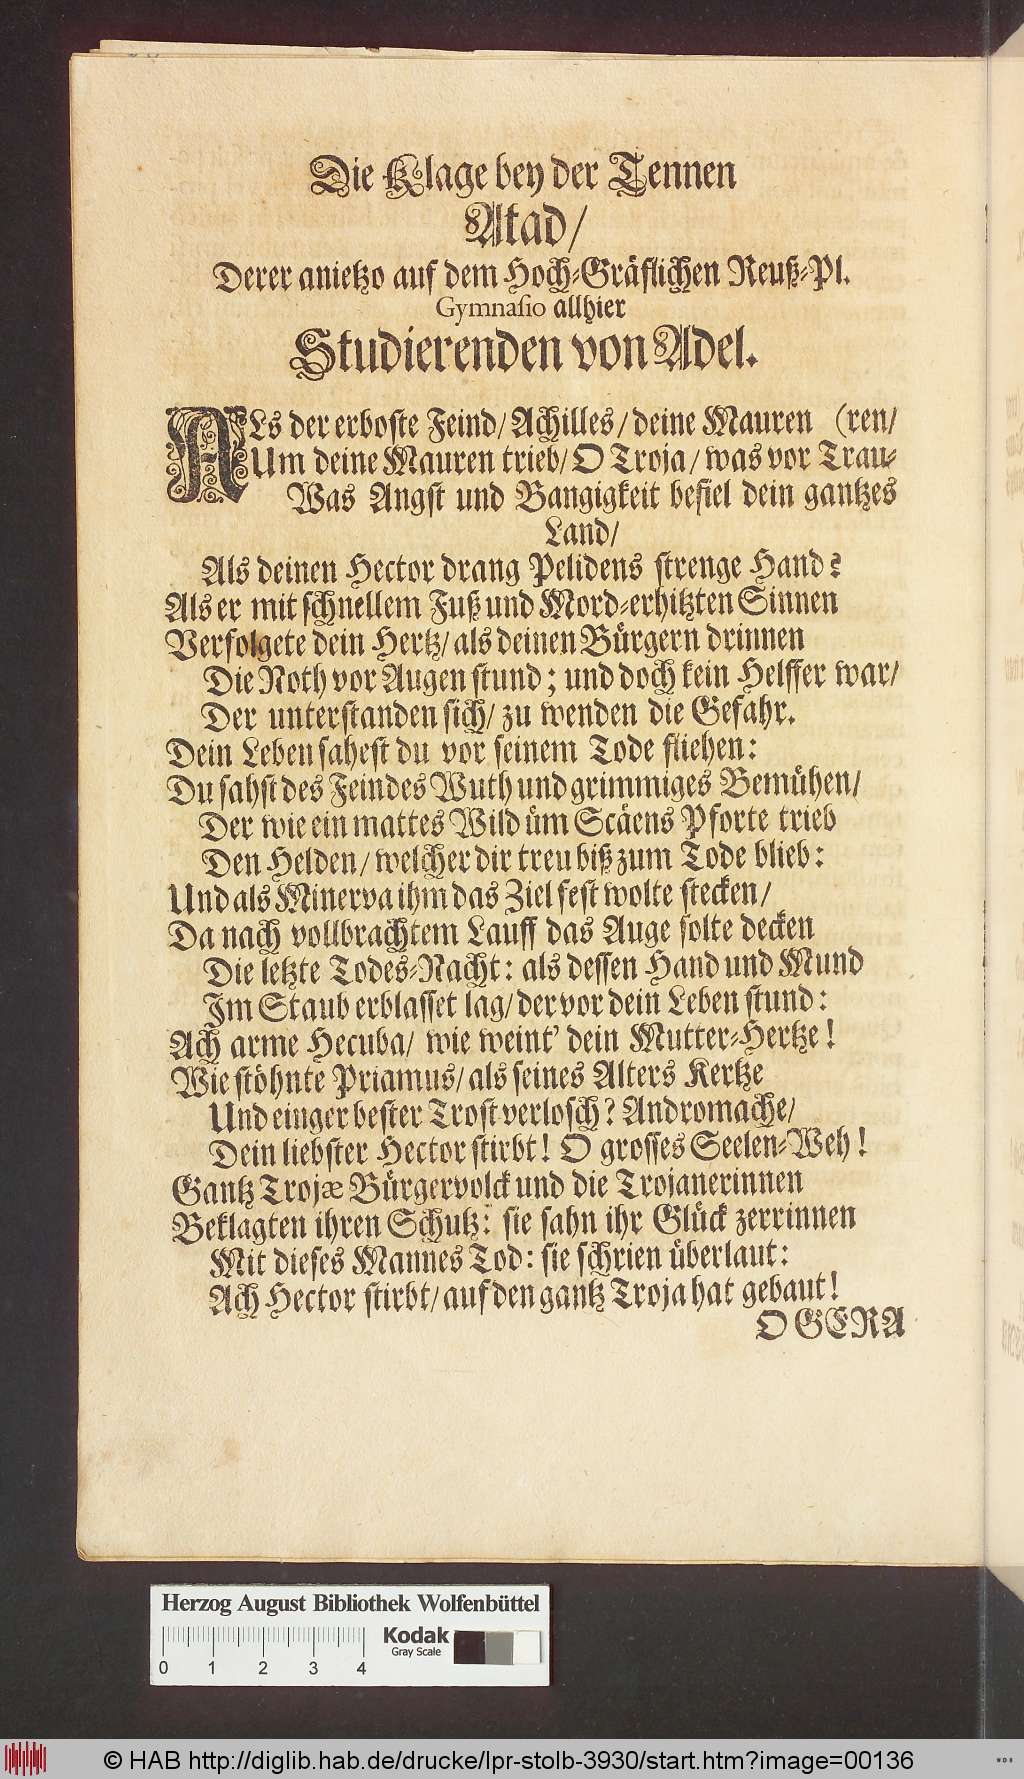 Die Klage bey der Tennen
Atad/
Derer anietzo auf dem Hoch-Gräflichen Reuß-Pl.
Gymnasio allhier
Studierenden von Adel.
ALs der erboste Feind/ Achilles/ deine Mauren (ren/
Um deine Mauren trieb/ O Troja/ was vor Trau-
Was Angst und Bangigkeit befiel dein gantzes
Land/
Als deinen Hector drang Pelidens strenge Hand?
Als er mit schnellem Fuß und Mord-erhitzten Sinnen
Verfolgete dein Hertz/ als deinen Bürgern drinnen
Die Noth vor Augen stund; und doch kein Helffer war/
Der unterstanden sich/ zu wenden die Gefahr.
Dein Leben sahest du vor seinem Tode fliehen:
Du sahst des Feindes Wuth und grimmiges Bemühen/
Der wie ein mattes Wild üm Scäens Pforte trieb
Den Helden/ welcher dir treu biß zum Tode blieb:
Und als Minerva ihm das Ziel fest wolte stecken/
Da nach vollbrachtem Lauff das Auge solte decken
Die letzte Todes-Nacht: als dessen Hand und Mund
Im Staub erblasset lag/ der vor dein Leben stund:
Ach arme Hecuba/ wie weint' dein Mutter-Hertze!
Wie stöhnte Priamus/ als seines Alters Kertze
Und einger bester Trost verlosch? Andromache/
Dein liebster Hector stirbt! O grosses Seelen-Weh!
Gantz Trojæ Bürgervolck und die Trojanerinnen
Beklagten ihren Schutz: sie sahn ihr Glück zerrinnen
Mit dieses Mannes Tod: sie schrien überlaut:
Ach Hector stirbt/ auf den gantz Troja hat gebaut!
O GERA
Herzog August Bibliothek Wolfenbüttel
Kodak
Gray Scale
0 1 2 3 4
© HAB http://diglib.hab.de/drucke/lpr-stolb-3930/start.htm?image=00136